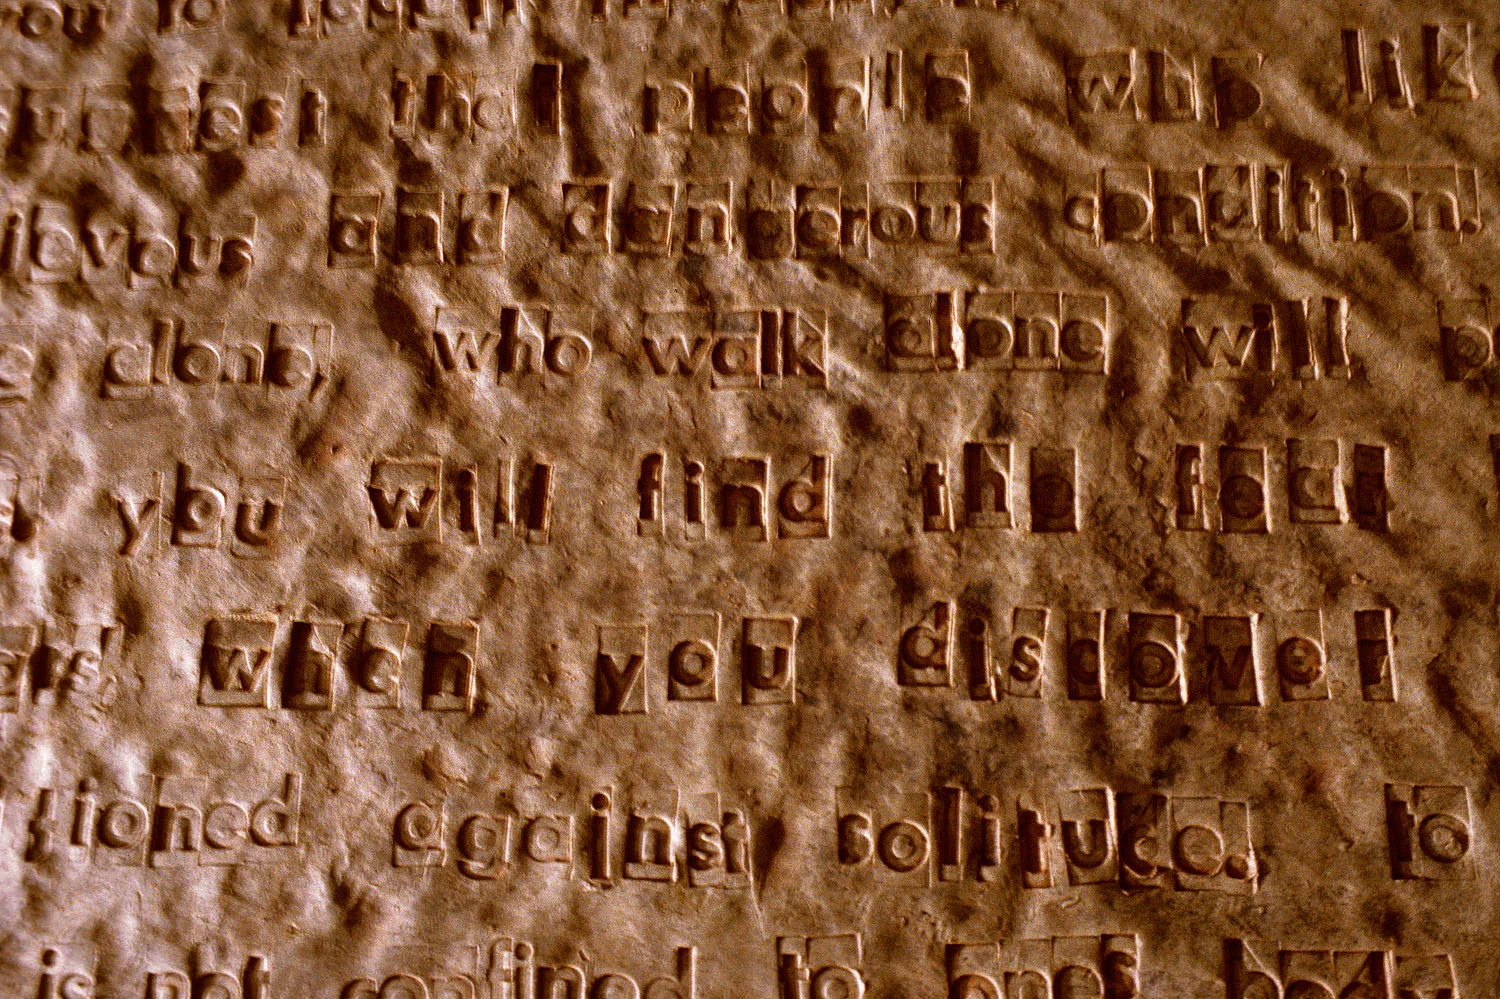 you to
that people who lik
ievous and dangerous condition.
alone, who walk alone will
you will find the fear
when you discover
tioned against solitude. to
is not confined to ones body